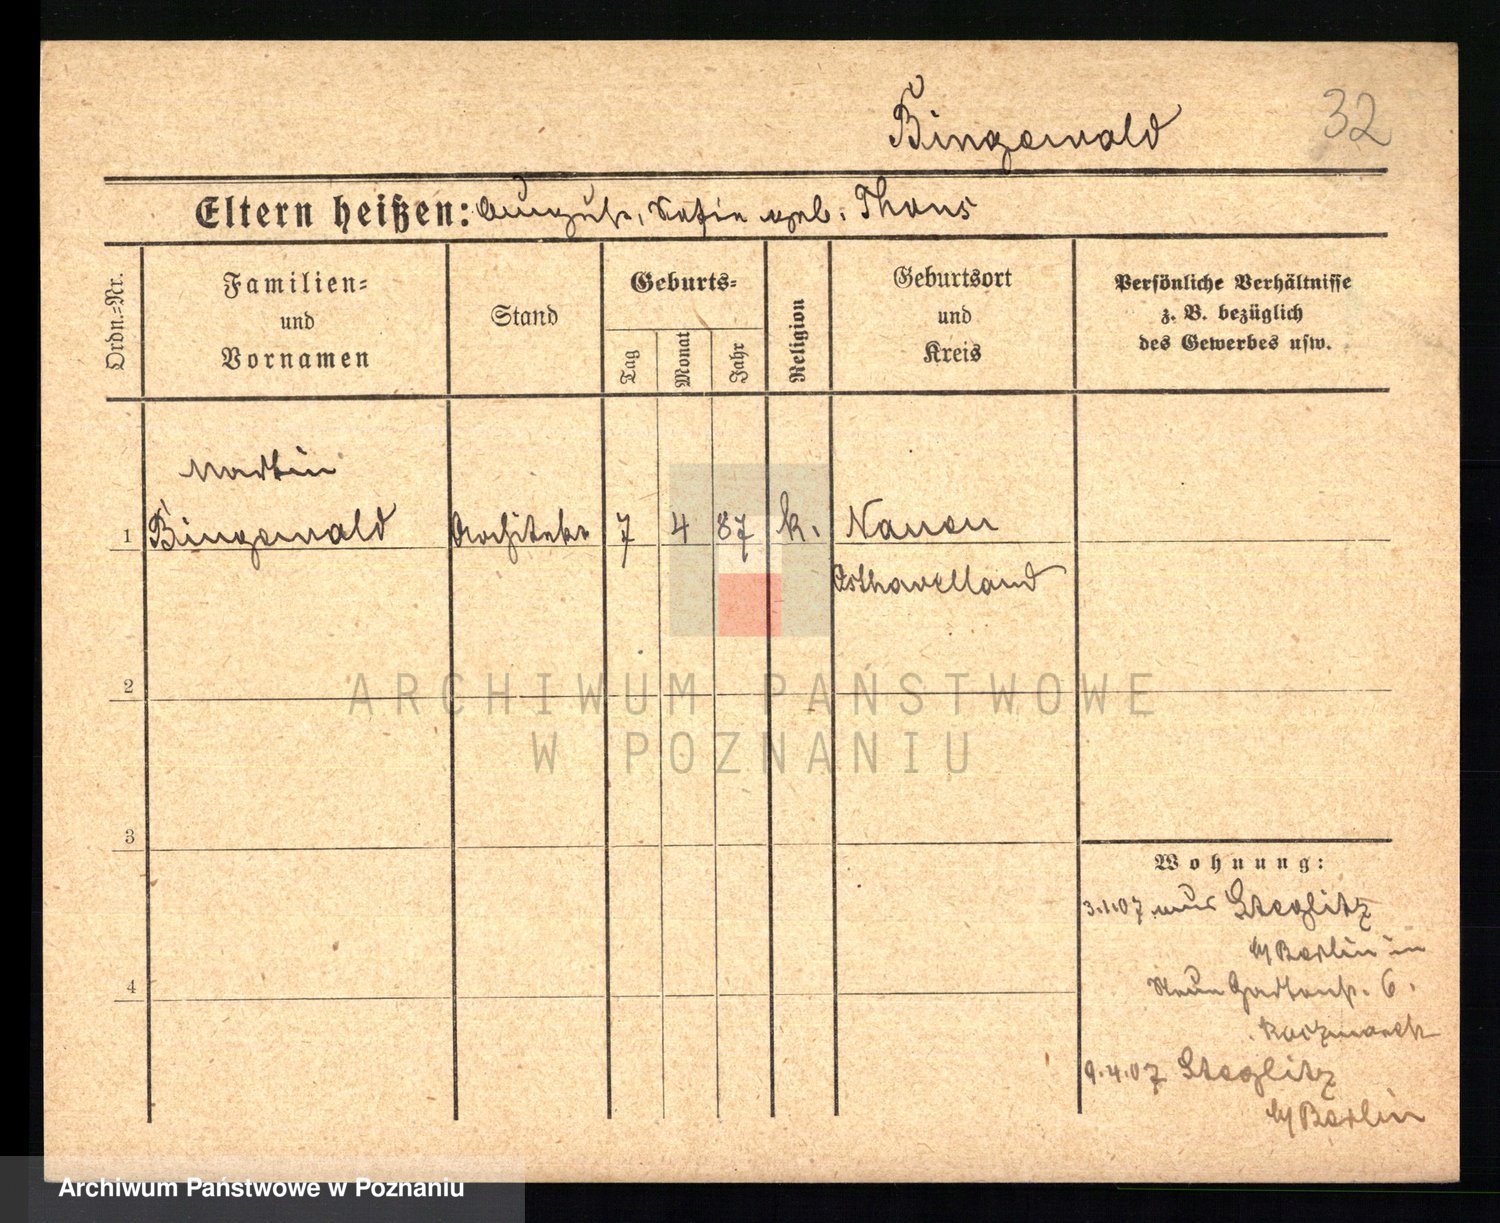 Bingewald
32
Eltern heißen: August, Sofie geb. Thons
Ordn.-Nr.
Familien-
und
Vornamen
Stand
Geburts-
Tag
Monat
Jahr
Religion
Geburtsort
und
Kreis
Persönliche Verhältnisse
z. B. bezüglich
des Gewerbes usw.
Martin
1 Bingewald Architekt 7 4 87 k. Nauen
Osthavelland
2
ARCHIWUM PAŃSTWOWE
W POZNANIU
3
Wohnung:
3.1.07 aus Steglitz
b/Berlin in
Neue Gartenstr. 6.
Kaczmarek
4
9.4.07 Steglitz
b/Berlin
Archiwum Państwowe w Poznaniu